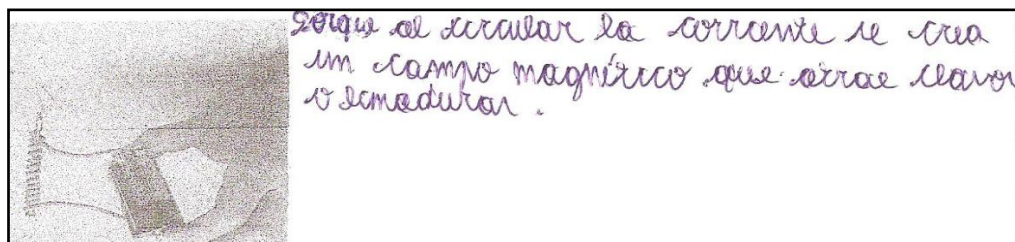 Porque al circular la corriente se crea
un campo magnético que atrae clavos
o